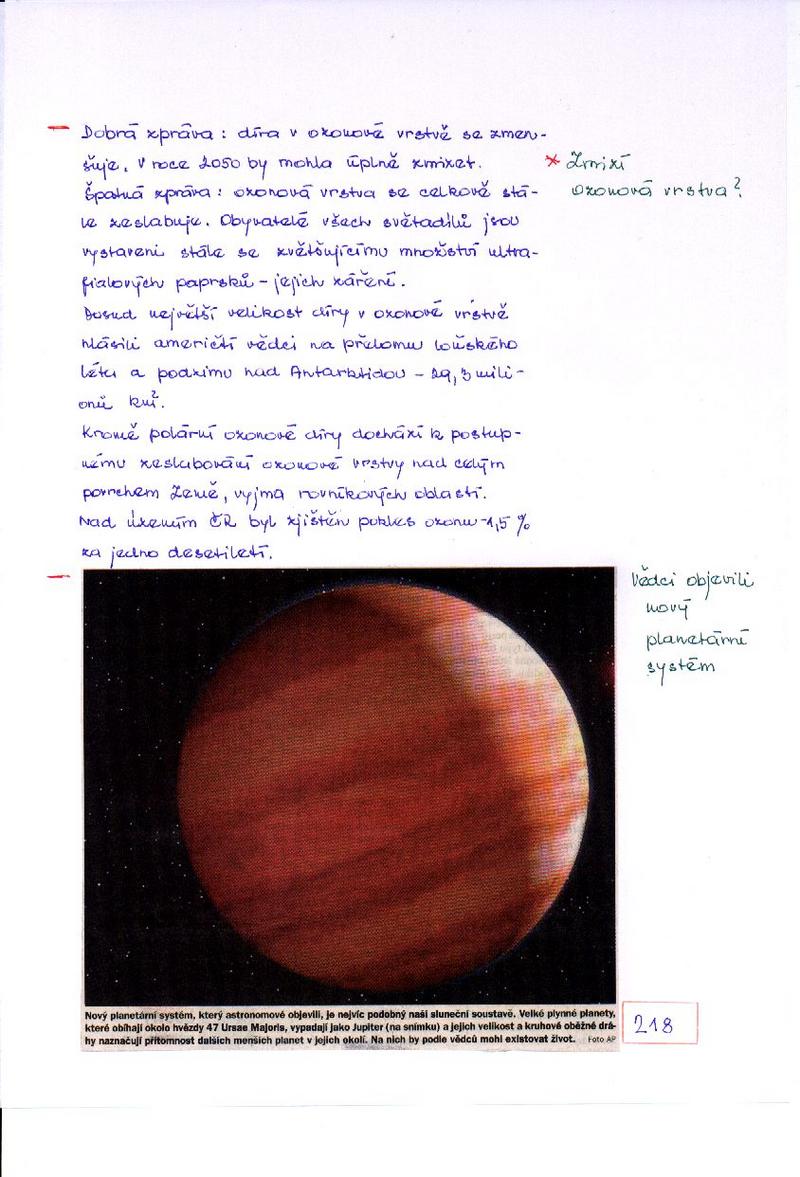 Dobrá zpráva: díra v ozonové vrstvě se zmen-
šuje. V roce 2050 by mohla úplně zmizet.
* Zmizí
ozonová vrstva?
Špatná zpráva: ozonová vrstva se celkově stá-
le zeslabuje. Obyvatelé všech světadílů jsou
vystaveni stále se zvětšujícímu množství ultra-
fialových paprsků - jejich záření.
Dosud největší velikost díry v ozonové vrstvě
hlásili američtí vědci na přelomu loňského
léta a podzimu nad Antarktidou - 29,3 mili-
onů km².
Kromě polární ozonové díry dochází k postup-
nému zeslabování ozonové vrstvy nad celým
povrchem Země, vyjma rovníkových oblastí.
Nad územím ČR byl zjištěn pokles ozonu -1,5 %
za jedno desetiletí.
Vědci objevili
nový
planetární
systém
Nový planetární systém, který astronomové objevili, je nejvíc podobný naší sluneční soustavě. Velké plynné planety,
které obíhají okolo hvězdy 47 Ursae Majoris, vypadají jako Jupiter (na snímku) a jejich velikost a kruhové oběžné drá-
hy naznačují přítomnost dalších menších planet v jejich okolí. Na nich by podle vědců mohl existovat život. Foto AP
218